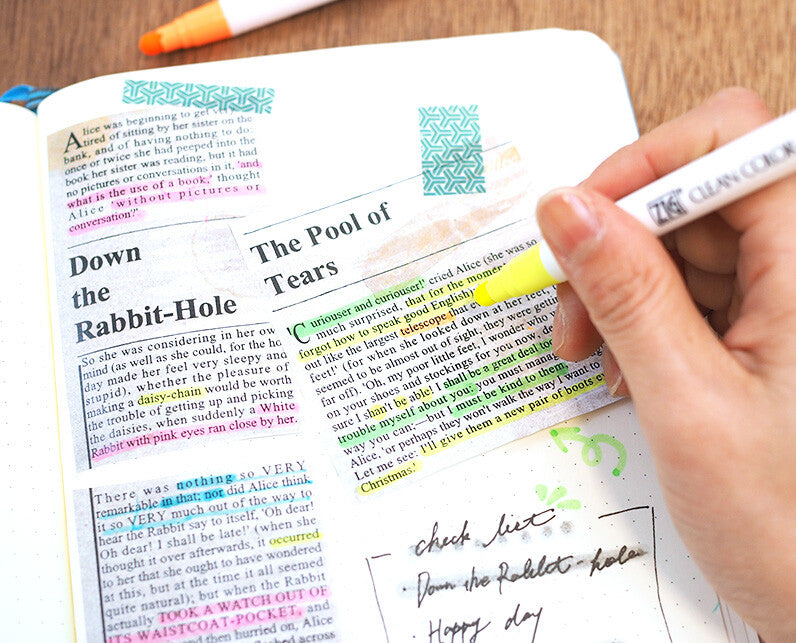 Alice was beginning to get very
tired of sitting by her sister on the
bank, and of having nothing to do:
once or twice she had peeped into the
book her sister was reading, but it had
no pictures or conversations in it, 'and
what is the use of a book,' thought
Alice 'without pictures or
conversation?'
Down
the
Rabbit-Hole
So she was considering in her ow
mind (as well as she could, for the ho
day made her feel very sleepy and
stupid), whether the pleasure of
making a daisy-chain would be worth
the trouble of getting up and picking
the daisies, when suddenly a White
Rabbit with pink eyes ran close by her.
There was nothing so VERY
remarkable in that; nor did Alice think
it so VERY much out of the way to
hear the Rabbit say to itself, 'Oh dear!
Oh dear! I shall be late!' (when she
thought it over afterwards, it occurred
to her that she ought to have wondered
at this, but at the time it all seemed
quite natural); but when the Rabbit
actually TOOK A WATCH OUT OF
ITS WAISTCOAT-POCKET, and
and then hurried on, Alice
across
The Pool of
Tears
'Curiouser and curiouser!' cried Alice (she was so
much surprised, that for the momen
forgot how to speak good English);
out like the largest telescope t
feet!' (for when she looked down at her feet
seemed to be almost out of sight, they were getting
far off). 'Oh, my poor little feet, I wonder who w
on your shoes and stockings for you now, de
sure I shan't be able! I shall be a great deal too
trouble myself about you: you must manage
way you can;—but I must be kind to them,'
Alice, 'or perhaps they won't walk the way I want to
Let me see: I'll give them a new pair of boots ev
Christmas.'
ZIG CLEAN COLOR
check list
· Down the Rabbit-hole
· Happy day